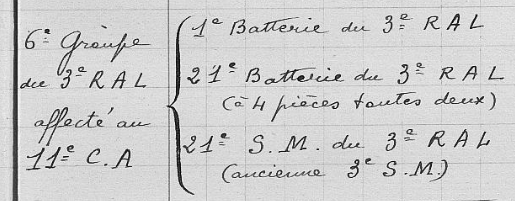 6e Groupe
du 3e RAL
affecté au
11e C.A
1e Batterie du 3e RAL
21e Batterie du 3e RAL
(à 4 pièces toutes deux)
21e S.M. du 3e RAL
(ancienne 3e S.M.)